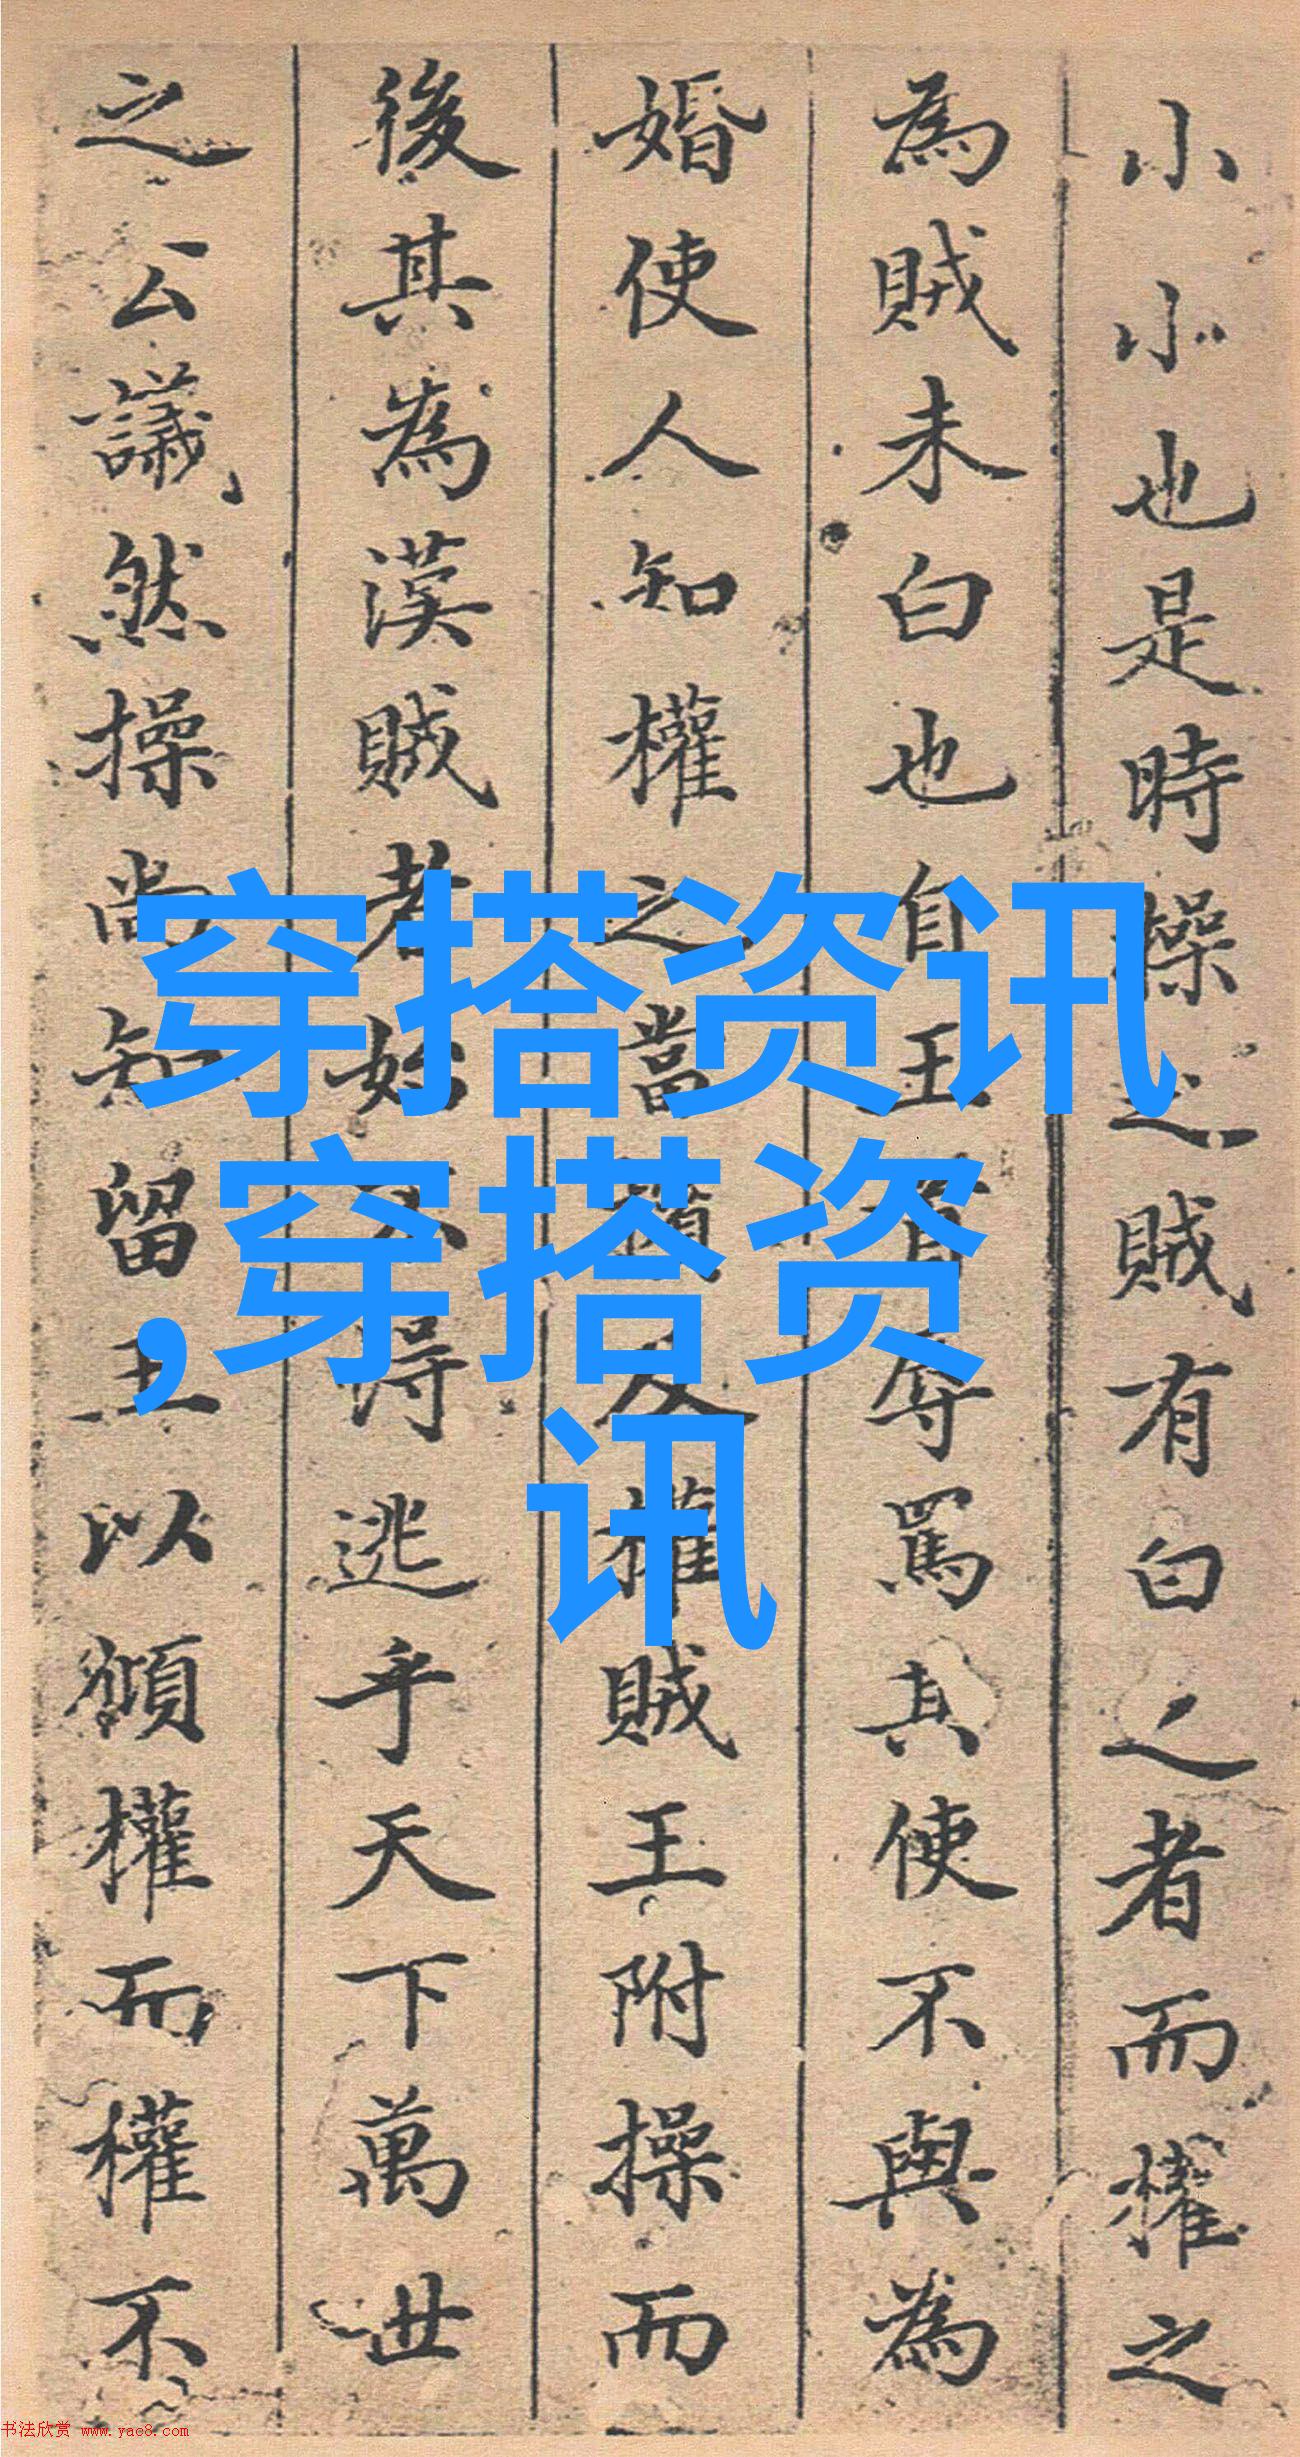 小小也是時操之賊有白之者而權之
為賊未白也自王者辱罵其使不與為
婚使人知權之當擯及權賊王附操而
後其為漢賊者始不得逃乎天下萬世
之公議然操尚知留王以頒權而權不
穿搭资讯
,穿搭资
讯
书法欣赏 www.yac8.com